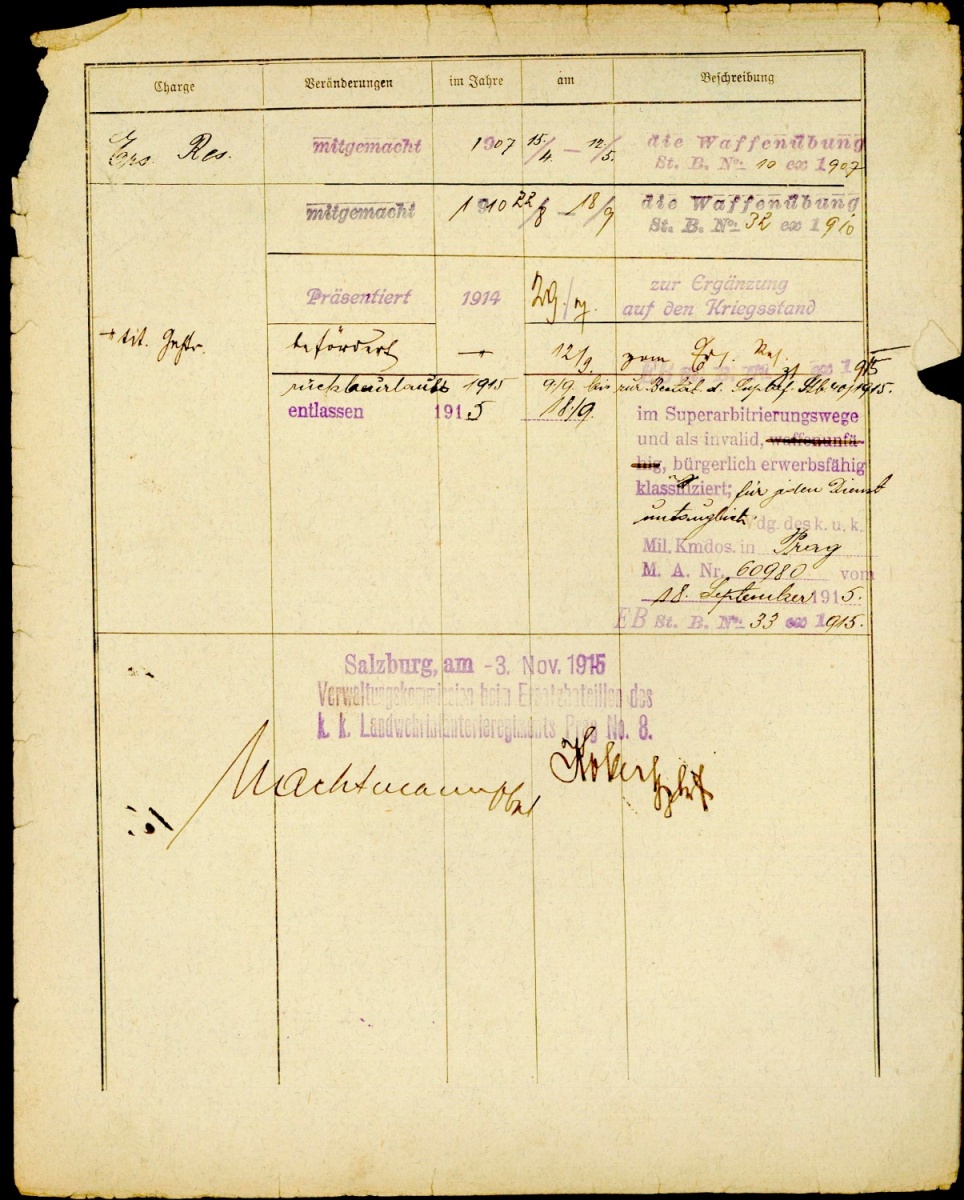 Charge Veränderungen im Jahre am Beschreibung
Ers. Res. mitgemacht 1907 15/4. — 12/5. die Waffenübung
St. B. No: 10 ex 1907
mitgemacht 1910 22/8 — 18/9 die Waffenübung
St. B. No: 32 ex 1910
Präsentiert 1914 29/ zur Ergänzung
auf den Kriegsstand
tit. befördert 12/9. zum Ers. Res.
ex 1915
rückbeurlaubt 1915 9/9. bis zur 1915.
entlassen 1915 18./9. im Superarbitrierungswege
und als invalid, waffenunfä-
hig, bürgerlich erwerbsfähig
klassifiziert; für jeden Dienst
untauglich. Vdg. des k. u. k.
Mil. Kmdos. in Prag
M. A. Nr. 60980 vom
18. September 1915.
EB St. B. No: 33 ex 1915.
Salzburg, am -3. Nov. 1915
Verwaltungskommission beim Ersatzbataillon des
k. k. Landwehrinfanterieregiments Prag No. 8.